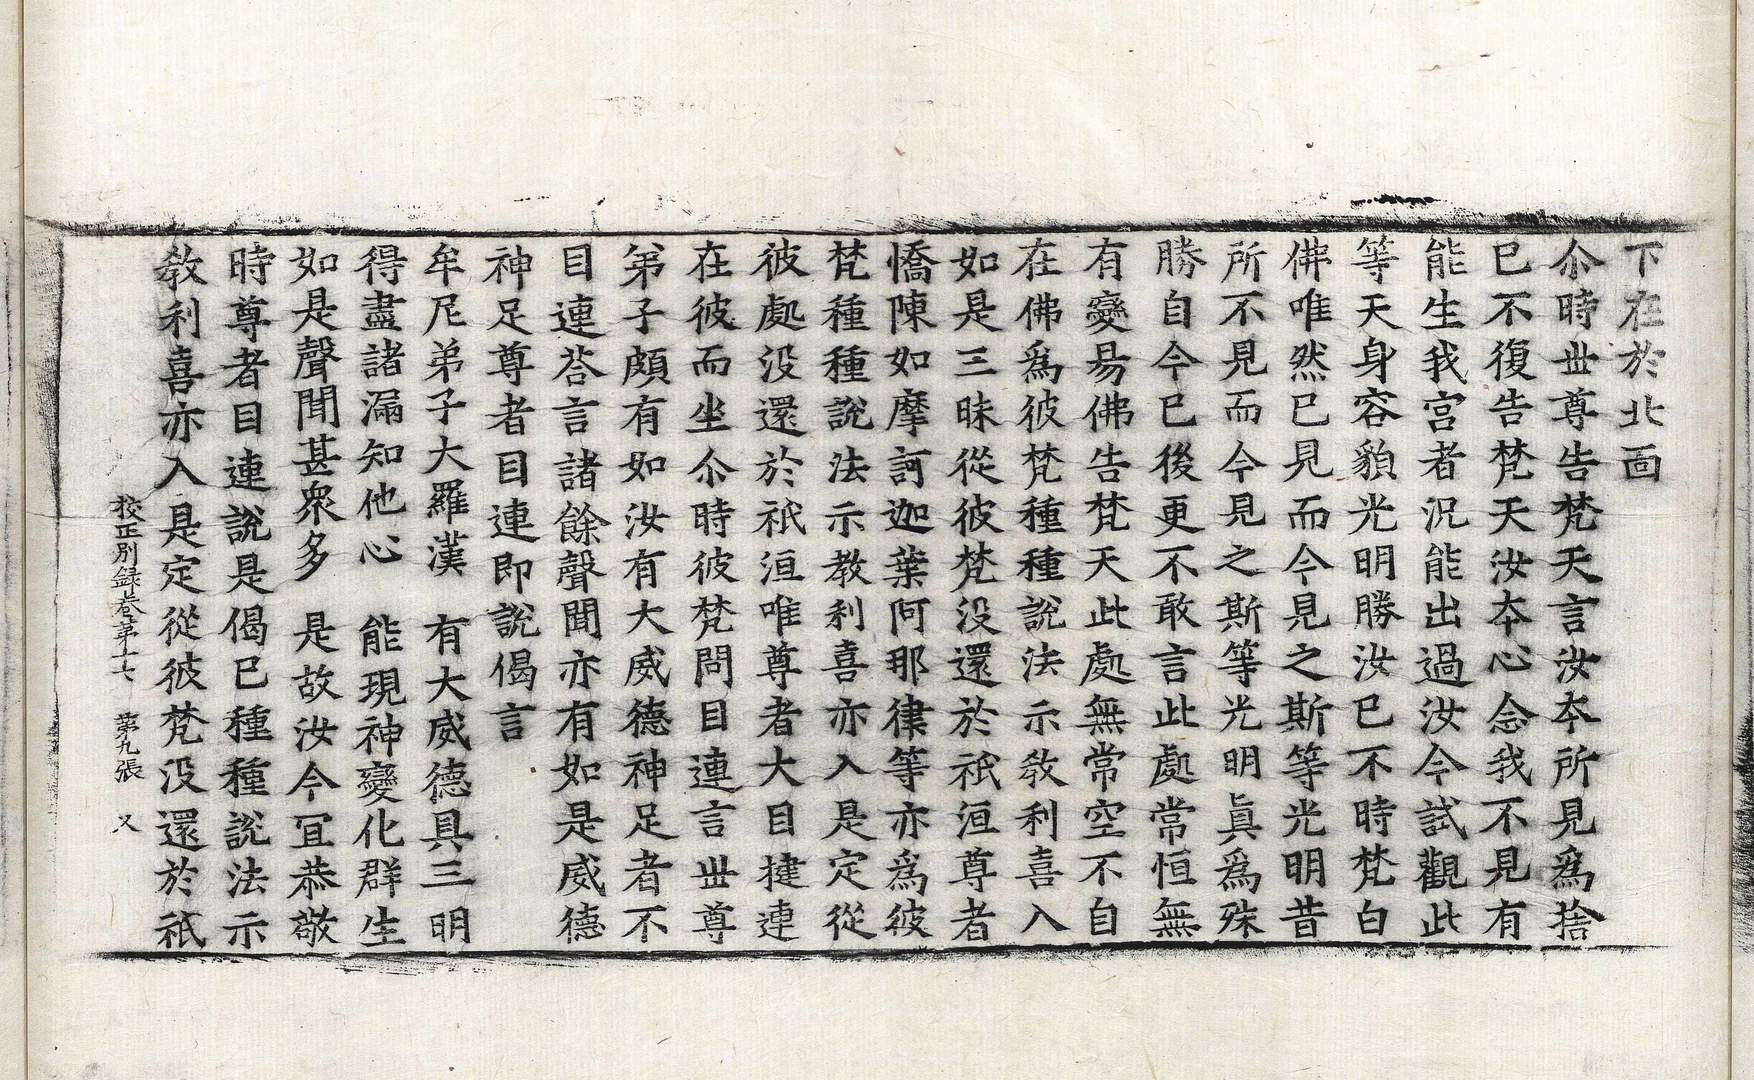 下在於北面
尒時世尊告梵天言汝夲所見爲捨
已不復告梵天汝夲心念我不見有
能生我宫者况能出過汝今試觀此
等天身容貌光明勝汝已不時梵白
佛唯然已見而今見之斯等光明昔
所不見而今見之斯等光明眞爲殊
勝自今已後更不敢言此處常恒無
有變易佛告梵天此處無常空不自
在佛爲彼梵種種說法示敎利喜入
如是三昧從彼梵没還於祇洹尊者
憍陳如摩訶迦葉阿那律等亦爲彼
梵種種說法示教利喜亦入是定從
彼處没還於祇洹唯尊者大目揵連
在彼而坐尒時彼梵問目連言世尊
弟子頗有如汝有大威德神足者不
目連荅言諸餘聲聞亦有如是威德
神足尊者目連即說偈言
牟尼弟子大羅漢　有大威德具三明
得盡諸漏知他心　能現神變化群生
如是聲聞甚衆多　是故汝今冝恭敬
時尊者目連說是偈已種種說法示
敎利喜亦入是定從彼梵没還於祇
校正別録卷第十七　第九張　又